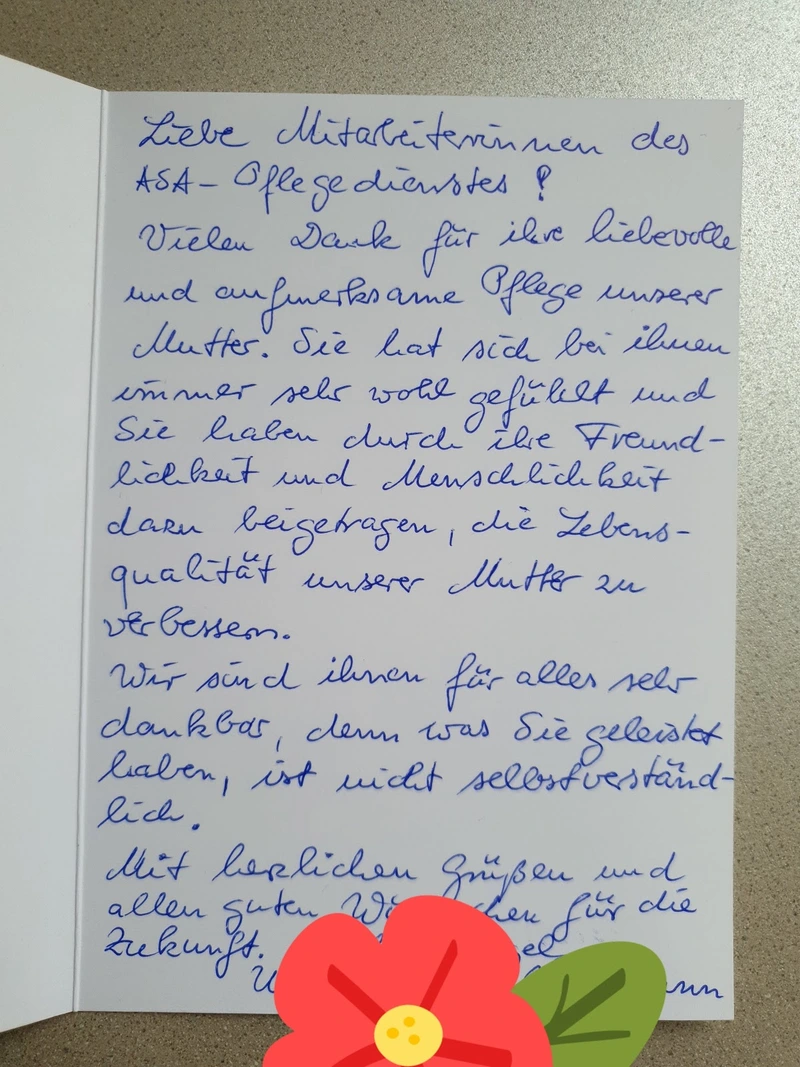 Liebe Mitarbeiterinnen des
ASA- Pflegedienstes !
Vielen Dank für ihre liebevolle
und aufmerksame Pflege unserer
Mutter. Sie hat sich bei ihnen
immer sehr wohl gefühlt und
Sie haben durch ihre Freund-
lichkeit und Menschlichkeit
dazu beigetragen, die Lebens-
qualität unserer Mutter zu
verbessern.
Wir sind ihnen für alles sehr
dankbar, denn was Sie geleistet
haben, ist nicht selbstverständ-
lich.
Mit herzlichen Grüßen und
allen guten für die
Zukunft.